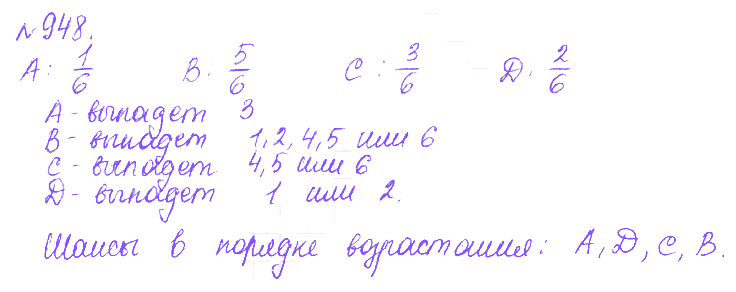 №948.
A: 1/6 B: 5/6 C: 3/6 D: 2/6
A - выпадет 3
B - выпадет 1, 2, 4, 5 или 6
C - выпадет 4, 5 или 6
D - выпадет 1 или 2.
Шансы в порядке возрастания: A, D, C, B.